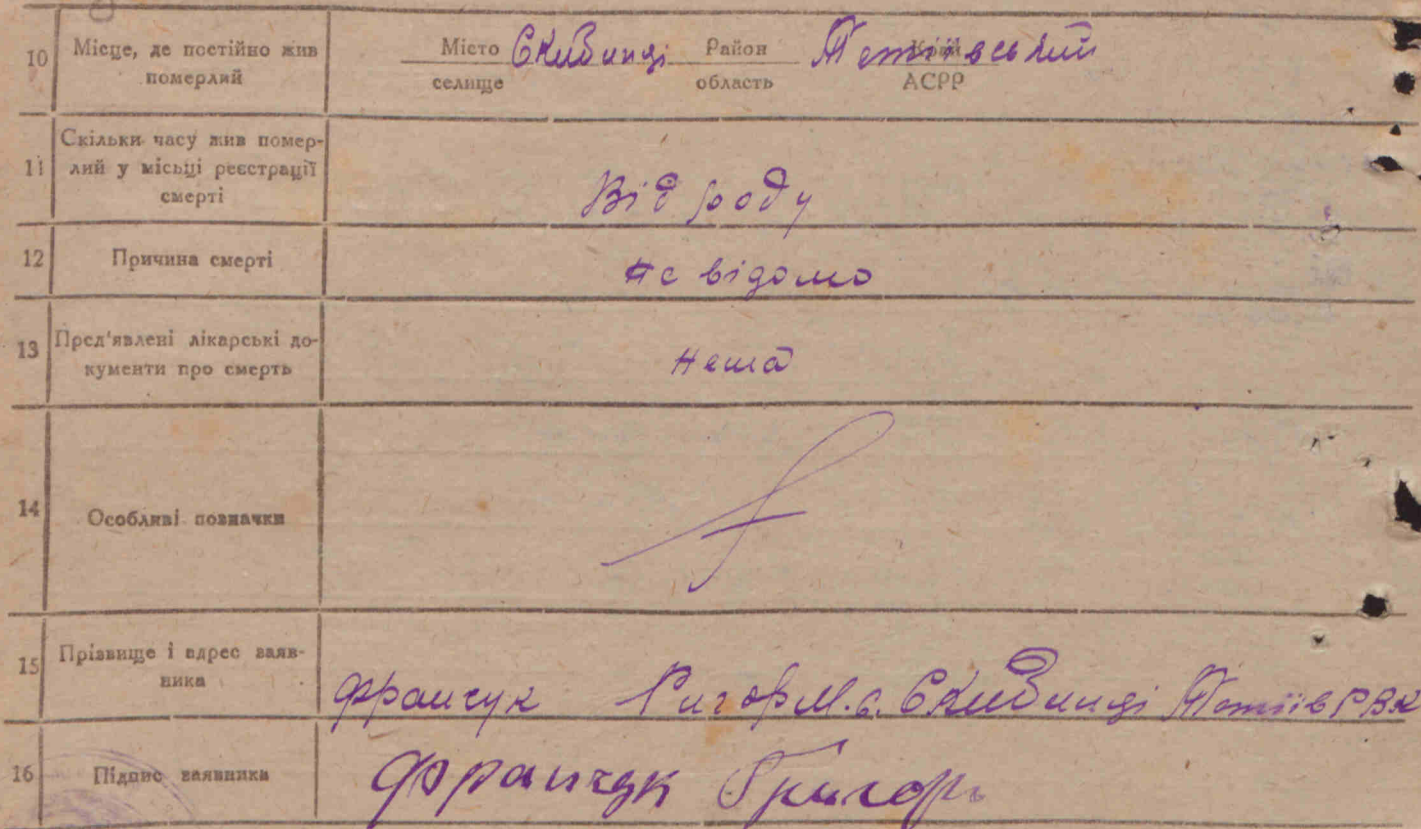 10 Місце, де постійно жив померлий
Місто селище Скибинці Район область Тетіївський Край АСРР
11 Скільки часу жив померлий у місьці реєстрації смерті
Від роду
12 Причина смерті
не відомо
13 Пред'явлені лікарські документи про смерть
Нема
14 Особливі позначки
15 Прізвище і адрес заявника
Франчук Григор М. с. Скибинці Тетіїв РВК
16 Підпис заявника
Франчук Григорь